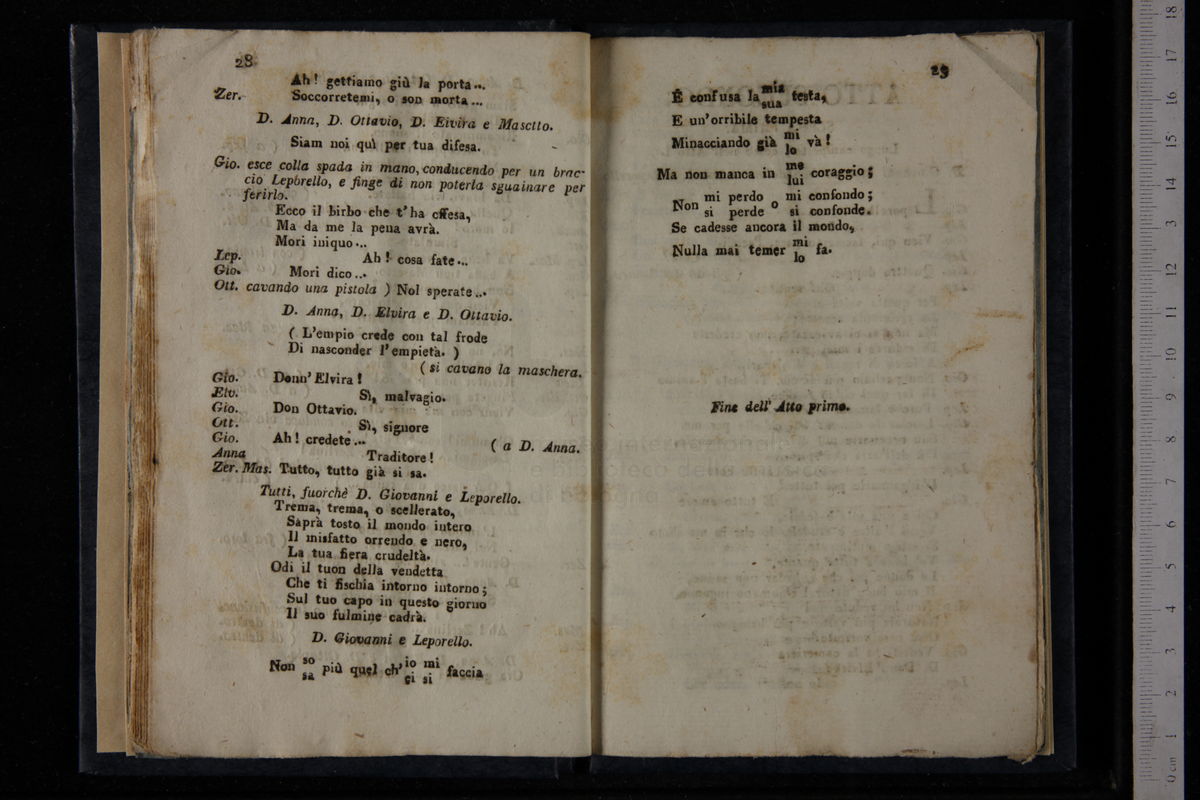 28
Ah! gettiamo giù la porta...
Zer. Soccorretemi, o son morta...
D. Anna, D. Ottavio, D. Elvira e Masetto.
Siam noi quì per tua difesa.
Gio. esce colla spada in mano, conducendo per un brac-
cio Leporello, e finge di non poterla sguainare per
ferirlo.
Ecco il birbo che t'ha offesa,
Ma da me la pena avrà.
Mori iniquo...
Lep. Ah! cosa fate...
Gio. Mori dico...
Ott. cavando una pistola ) Nol sperate...
D. Anna, D. Elvira e D. Ottavio.
( L'empio crede con tal frode
Di nasconder l'empietà. )
( si cavano la maschera.
Gio. Donn' Elvira!
Elv. Sì, malvagio.
Gio. Don Ottavio.
Ott. Sì, signore
Gio. Ah! credete... ( a D. Anna.
Anna Traditore!
Zer. Mas. Tutto, tutto già si sa.
Tutti, fuorchè D. Giovanni e Leporello.
Trema, trema, o scellerato,
Saprà tosto il mondo intero
Il misfatto orrendo e nero,
La tua fiera crudeltà.
Odi il tuon della vendetta
Che ti fischia intorno intorno;
Sul tuo capo in questo giorno
Il suo fulmine cadrà.
D. Giovanni e Leporello.
Non so sa più quel ch' io mi ei si faccia
29
È confusa la mia sua testa,
E un' orribile tempesta
Minacciando già mi lo và!
Ma non manca in me lui coraggio;
Non mi perdo si perde o mi confondo; si confonde.
Se cadesse ancora il mondo,
Nulla mai temer mi lo fa.
Fine dell' Atto primo.